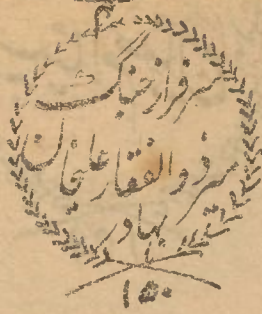 سرفراز جنگ
میر ذوالفقار علیخان
بہادر
۱۵۰